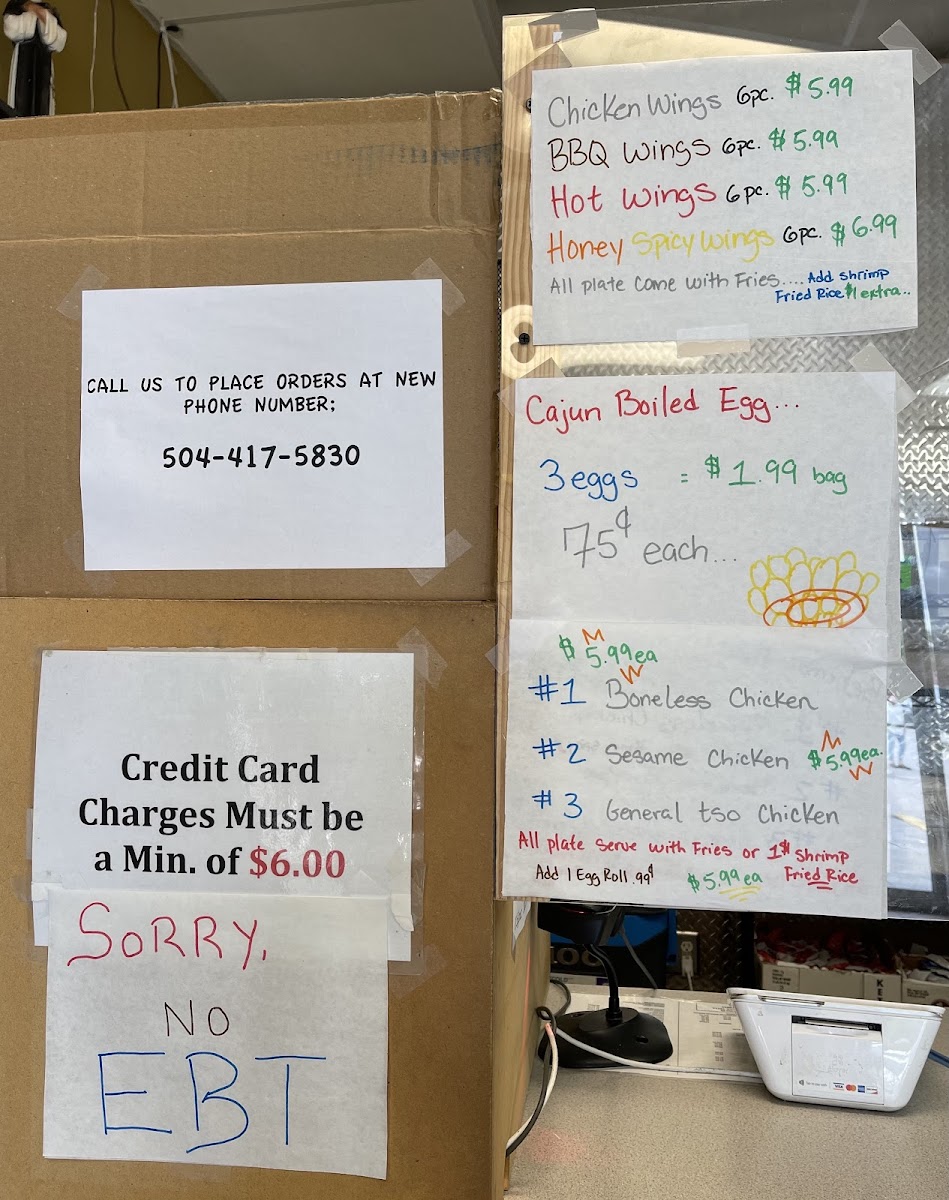 CALL US TO PLACE ORDERS AT NEW
PHONE NUMBER:
504-417-5830
Credit Card
Charges Must be
a Min. of $6.00
SORRY,
NO
EBT
Chicken Wings 6pc. $5.99
BBQ Wings 6pc. $5.99
Hot Wings 6pc. $5.99
Honey Spicy Wings 6pc. $6.99
All plate come with Fries.... Add shrimp
Fried Rice $1 extra..
Cajun Boiled Egg...
3 eggs = $1.99 bag
75¢ each...
$5.99ea
#1 Boneless Chicken
#2 Sesame Chicken $5.99ea.
#3 General tso Chicken
All plate serve with Fries or 1$ Shrimp
Fried Rice
Add 1 Egg Roll .99¢ $5.99 ea
VISA